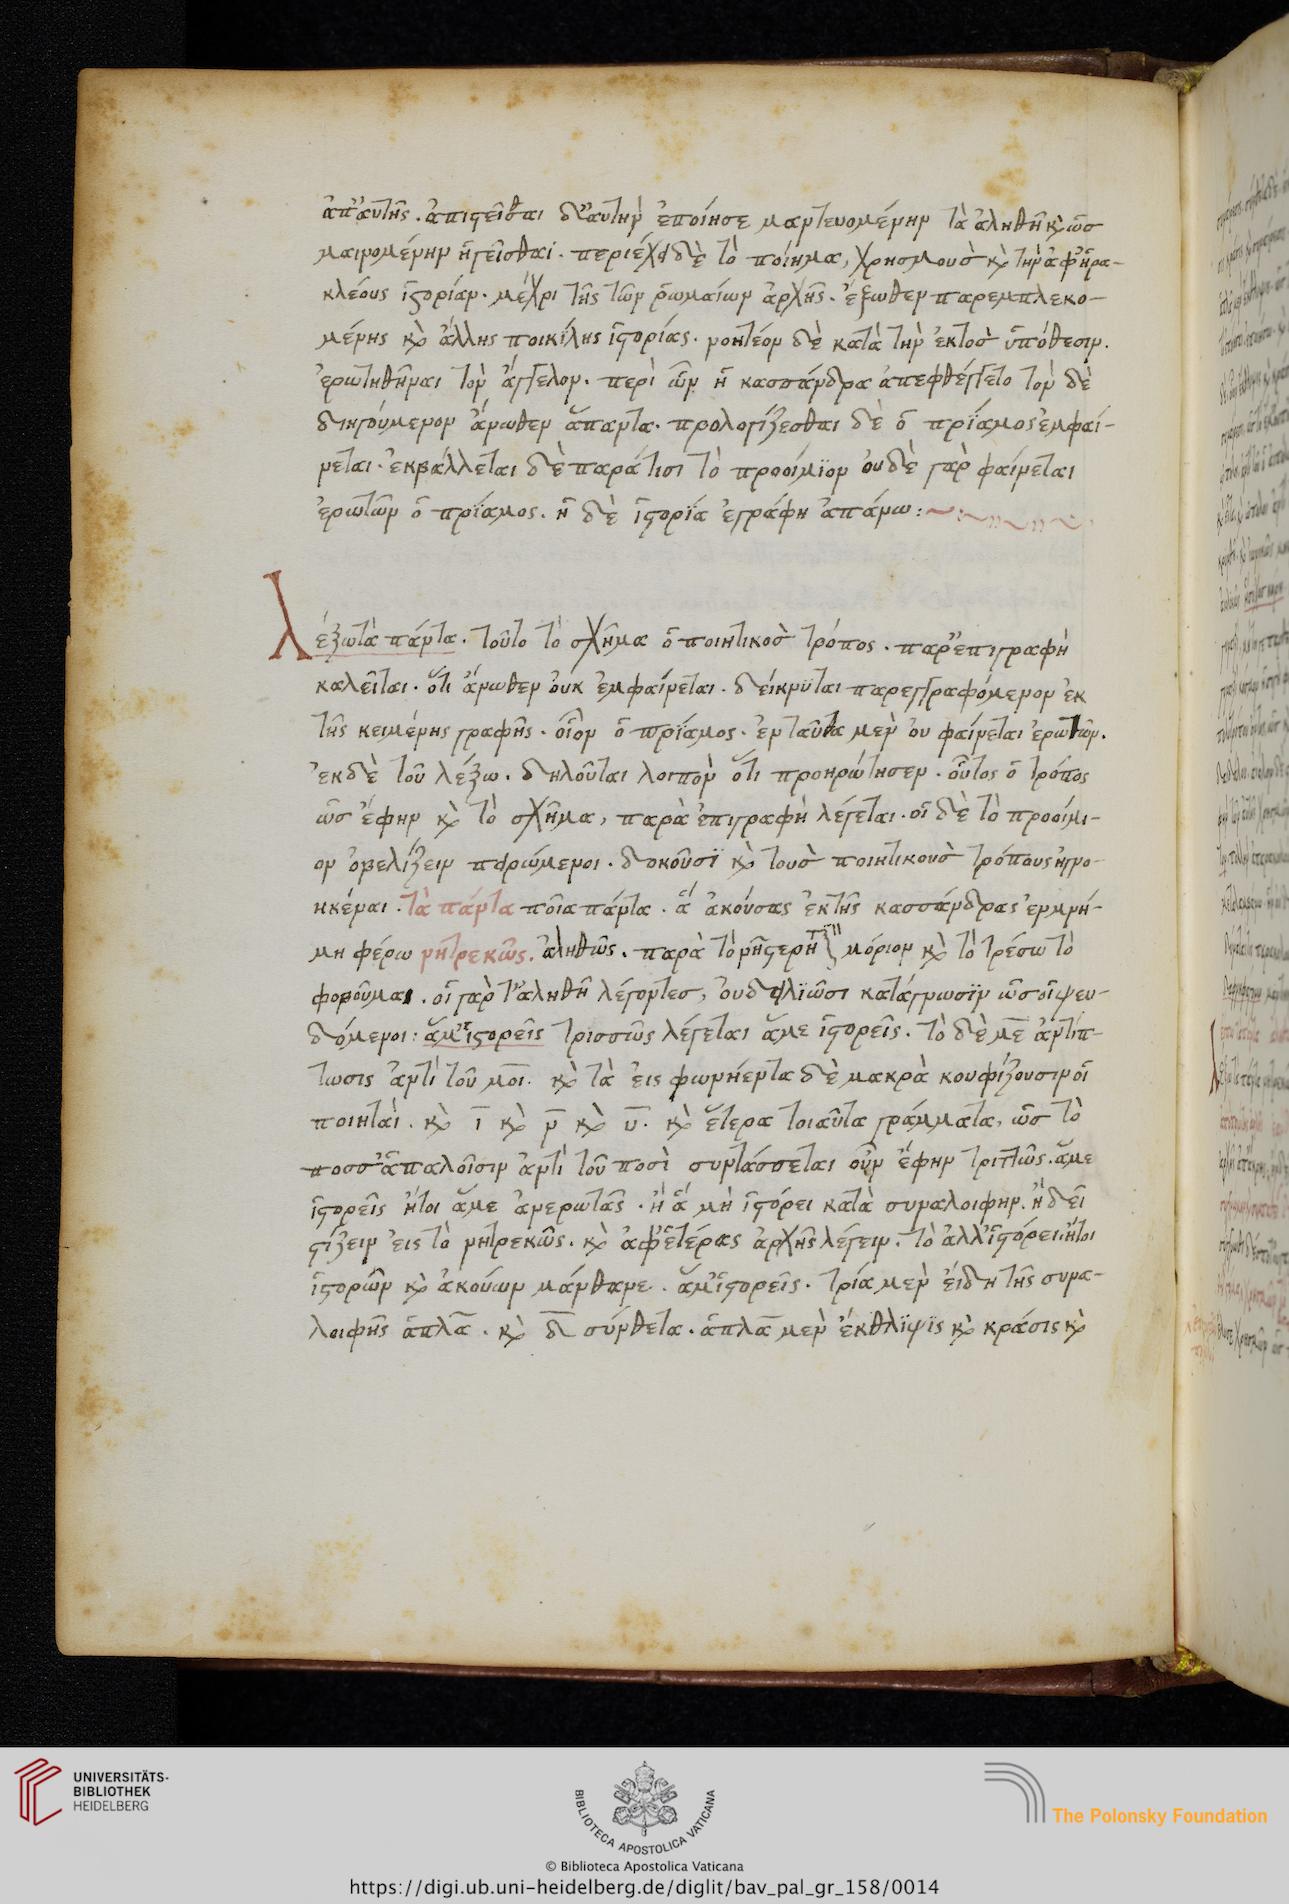 ἀπ' αὐτῆς. ἀπιστεῖσθαι δ' αὐτὴν ἐποίησε μαντευομένην τὰ ἀληθῆ κ ὡσ
μαινομένην ἡγεῖσθαι. περιέχει δὲ τὸ ποίημα, χρησμοὺσ κ τὴν ἀφ' ἡρα-
κλέους ἱστορίαν. μέχρι τῆς τῶν ῥωμαίων ἀρχῆς. ἔξωθεν παρεμπλεκο-
μένης κ ἄλλης ποικίλης ἱστορίας. νοητέον δὲ κατὰ τὴν ἐκτοσ ὑπόθεσιν.
ἐρωτηθῆναι τὸν ἄγγελον. περὶ ὧν ἡ κασσάνδρα ἀπεφθέγγετο τὸν δὲ
διηγούμενον ἄνωθεν ἅπαντα. προλογίζεσθαι δὲ ὁ πρίαμος ἐμφαί-
νεται. ἐκβάλλεται δὲ παρά τισι τὸ προοίμϊον οὐδὲ γὰρ φαίνεται
ἐρωτῶν ὁ πρίαμος. ἡ δὲ ἱστορία ἐγράφη ἀπάνω :
λέξω τὰ πάντα. τοῦτο τὸ σχῆμα ὁ ποιητικοσ τρόπος. παρεπιγραφὴ
καλεῖται. ὅτι ἄνωθεν οὐκ ἐμφαίνεται. δείκνυται παρεγγραφόμενον ἐκ
τῆς κειμένης γραφῆς. οἷον ὁ πρίαμος. ἐνταῦθα μὲν οὐ φαίνεται ἐρωτῶν.
ἐκ δὲ τοῦ λέξω. δηλοῦται λοιπὸν ὅτι προηρώτησεν. οὗτος ὁ τρόπος
ὡσ ἔφην κ τὸ σχῆμα, παρὰ ἐπιγραφὴ λέγεται. οἱ δὲ τὸ προοίμι-
ον ὀβελίζειν πειρώμενοι. δοκοῦσϊ κ τοὺσ ποιητικοὺσ τρόπους ἠγνο-
ηκέναι. τὰ πάντα ποῖα πάντα. ἅ ἀκούσας ἐκ τῆς κασσάνδρας ἐν μνή-
μη φέρω νητρεκῶς. ἀληθῶς. παρὰ τὸ νη στερητι μόριον κ τὸ τρέσω τὸ
φοβοῦμαι. οἱ γὰρ τ' ἀληθῆ λέγοντεσ, οὐ δειλϊῶσι κατάγνωσϊν ὡσ οἱ ψευ-
δόμενοι : ἅμ' ἱστορεῖς τρισσῶς λέγεται ἅμε ἱστορεῖς. τὸ δὲ με ἀντίπ-
τωσις ἀντὶ τοῦ μοι. κ τὰ εἰς φωνήεντα δὲ μακρὰ κουφίζουσιν οἱ
ποιηταί. κ ι κ ν κ υ. κ ἕτερα τοιαῦτα γράμματα, ὡσ τὸ
ποσσ' ἁπαλοῖσιν ἀντὶ τοῦ ποσὶ συντάσσεται οὖν ἔφην τριττῶς. ἅμε
ἱστορεῖς ἤτοι ἅμε ἀνερωτᾶς. ἢ ἅ μὴ ἱστόρει κατὰ συναλοιφην. ἢ δεῖ
στίζειν εἰς τὸ νητρεκῶς. κ ἀφ' ἑτέρας ἀρχῆς λέγειν. τὸ ἀλλ' ἱστόρει. ἤτοι
ἱστορῶν κ ἀκούων μάνθανε. ἅμ' ἱστορεῖς. τρία μὲν εἴδη τῆς συνα-
λοιφῆς ἁπλᾶ. κ δ σύνθετα. ἁπλᾶ μὲν ἔκθλϊψϊς κ κράσις κ
UNIVERSITÄTS-
BIBLIOTHEK
HEIDELBERG
BIBLIOTECA APOSTOLICA VATICANA
The Polonsky Foundation
© Biblioteca Apostolica Vaticana
https://digi.ub.uni-heidelberg.de/diglit/bav_pal_gr_158/0014